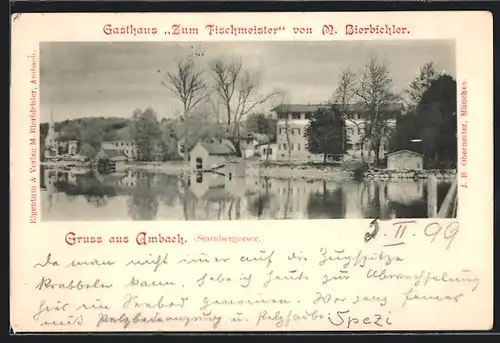 Gasthaus „Zum Fischmeister“ von M. Bierbichler.
Eigentum & Verlag M. Bierbichler, Ambach.
J. B. Obernetter, München.
Gruss aus Ambach. (Starnbergersee.
5. II. 99
Da man nicht immer auf die Zugspitze
krabbeln kann, habe ich heute zur Abwechslung
hier ein Seebad genommen. War ganz famos
mit Pelzbadeanzug u. Pelzhaube Spezi